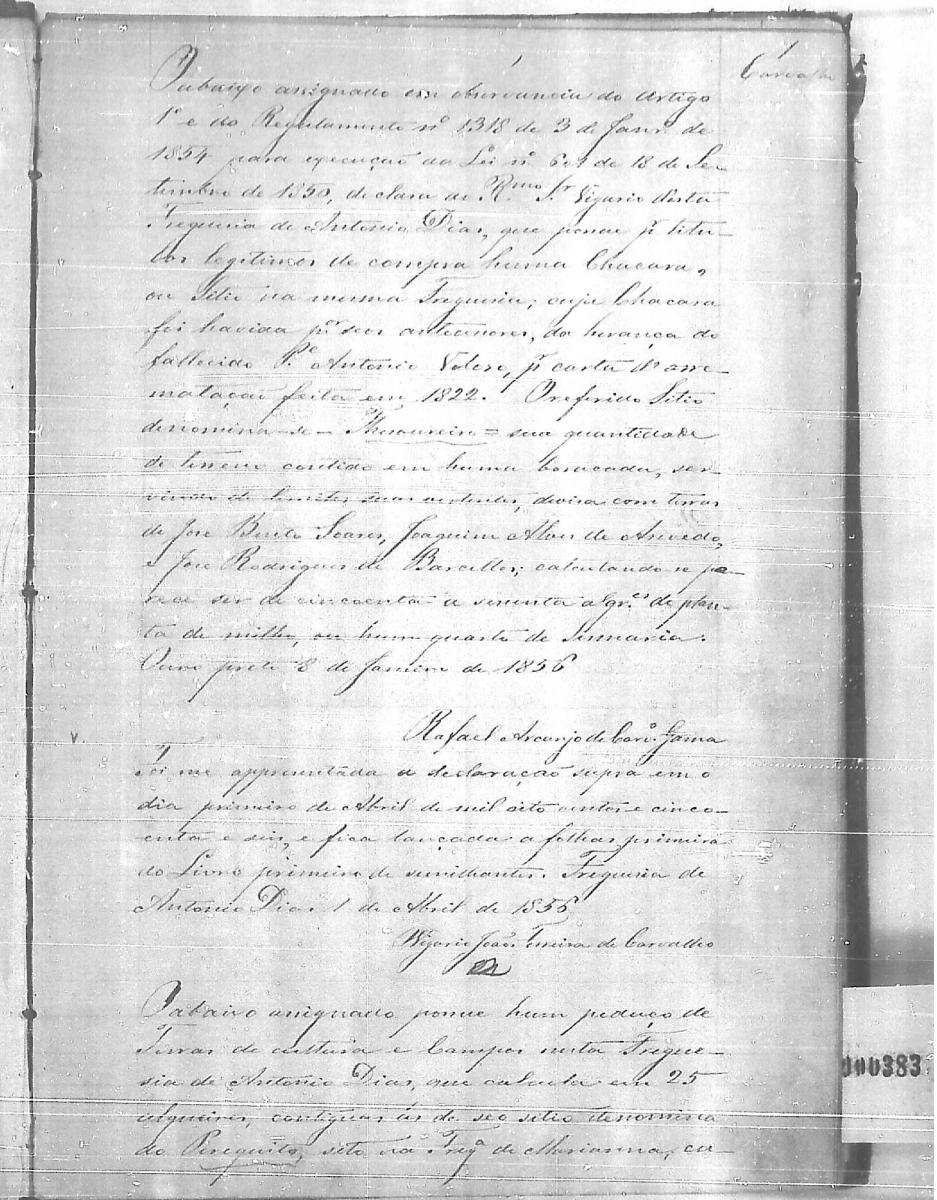 1
Carvalho
O abaixo assignado em observancia do Artigo
1º e do Regulamento nº 1318 de 3 de Janrº de
1854 para execução da Lei nº 601 de 18 de Se-
tembro de 1850, declara ao Rmo Sr Vigario desta
Freguesia de Antonio Dias, que possue pr titu-
los legitimos de compra huma Chacara,
ou Sitio na mesma Freguesia; cuja Chacara
foi havida pr seos antecessores, da herança do
fallecido Pe Antonio Veloso, pr carta de arre-
matação feita em 1822. O referido Sitio
denomina-se = Thesoureiro = sua quantidade
de terreno contido em huma bocacada, ser-
vindo de limites suas vertentes, devisa com terras
de Jose Bento Soares, Joaquim Alves de Azevedo,
e Jose Rodrigues de Barcellos; calculando-se pa-
rece ser de cincoenta a sessenta algres de plan-
ta de milho, ou hum quarto de Sesmaria.
Ouro preto 8 de Janeiro de 1856
Rafael Arcanjo de Carvº Gama
Foi me appresentada a declaração supra em o
dia primeiro de Abril de mil oito centos e cinco-
enta e seis, e fica lançada a folhas primeira
do Livro primeiro de similhantes. Freguesia de
Antonio Dias 1 de Abril de 1856
Vigario João Ferreira de Carvalho
O abaixo assignado possue hum pedaço de
Terras de cultura e Campos nesta Fregue-
sia de Antonio Dias, que calcula em 25
alqueires, contiguas ás do seo sitio denomina
do Periquito, sito na Frega de Marianna, cu-
000383